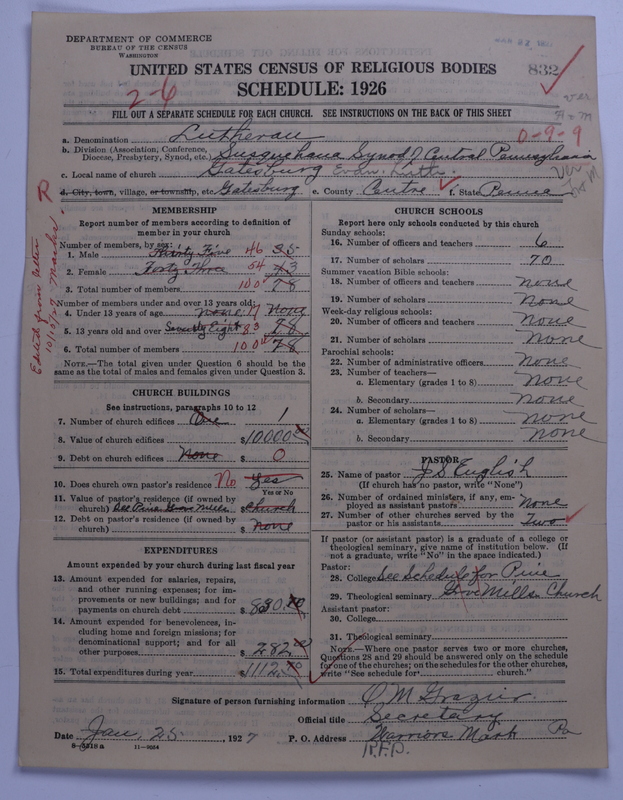 DEPARTMENT OF COMMERCE
BUREAU OF THE CENSUS
WASHINGTON
UNITED STATES CENSUS OF RELIGIOUS BODIES
832
SCHEDULE: 1926
2-6
FILL OUT A SEPARATE SCHEDULE FOR EACH CHURCH. SEE INSTRUCTIONS ON THE BACK OF THIS SHEET
0-9-9
a. Denomination Lutheran
b. Division (Association, Conference, Diocese, Presbytery, Synod, etc.) Susquehana Synod of Central Pennsylvania
c. Local name of church Gatesburg Evan. Luth.
d. City, town, village, or township, etc. Gatesburg e. County Centre f. State Penna
R
Edited from letter 10/10/27
MEMBERSHIP
Report number of members according to definition of member in your church
Number of members, by sex:
1. Male Thirty Five 46 35
2. Female Forty Three 54 43
3. Total number of members 100 78
Number of members under and over 13 years old:
4. Under 13 years of age none 17 None
5. 13 years old and over Seventy Eight 83 78
6. Total number of members 100 78
NOTE.—The total given under Question 6 should be the same as the total of males and females given under Question 3.
CHURCH BUILDINGS
See instructions, paragraphs 10 to 12
7. Number of church edifices One 1
8. Value of church edifices $10000.00
9. Debt on church edifices None $ 0
10. Does church own pastor's residence? No Yes
Yes or No
11. Value of pastor's residence (if owned by church) See Pine Grove Mills $ Church
12. Debt on pastor's residence (if owned by church) $ None
EXPENDITURES
Amount expended by your church during last fiscal year
13. Amount expended for salaries, repairs, and other running expenses; for improvements or new buildings; and for payments on church debt $ 830.70
14. Amount expended for benevolences, including home and foreign missions; for denominational support; and for all other purposes $ 282.00
15. Total expenditures during year $ 1112.70
CHURCH SCHOOLS
Report here only schools conducted by this church
Sunday schools:
16. Number of officers and teachers 6
17. Number of scholars 70
Summer vacation Bible schools:
18. Number of officers and teachers none
19. Number of scholars None
Week-day religious schools:
20. Number of officers and teachers None
21. Number of scholars None
Parochial schools:
22. Number of administrative officers None
23. Number of teachers—
a. Elementary (grades 1 to 8) None
b. Secondary None
24. Number of scholars—
a. Elementary (grades 1 to 8) None
b. Secondary None
PASTOR
25. Name of pastor J S English
(If church has no pastor, write "None")
26. Number of ordained ministers, if any, employed as assistant pastors None
27. Number of other churches served by the pastor or his assistants two
If pastor (or assistant pastor) is a graduate of a college or theological seminary, give name of institution below. (If not a graduate, write "No" in the space indicated.)
Pastor:
28. College See Schedule for Pine
29. Theological seminary Grove Mills Church
Assistant pastor:
30. College
31. Theological seminary
NOTE.—Where one pastor serves two or more churches, Questions 28 and 29 should be answered only on the schedule for one of the churches; on the schedules for the other churches, write "See schedule for church."
Signature of person furnishing information O M Grazier
Official title Secretary
Date Jan. 25, 1927 P. O. Address Warriors Mark Pa
R.F.D.
8-5318 a 11-9054